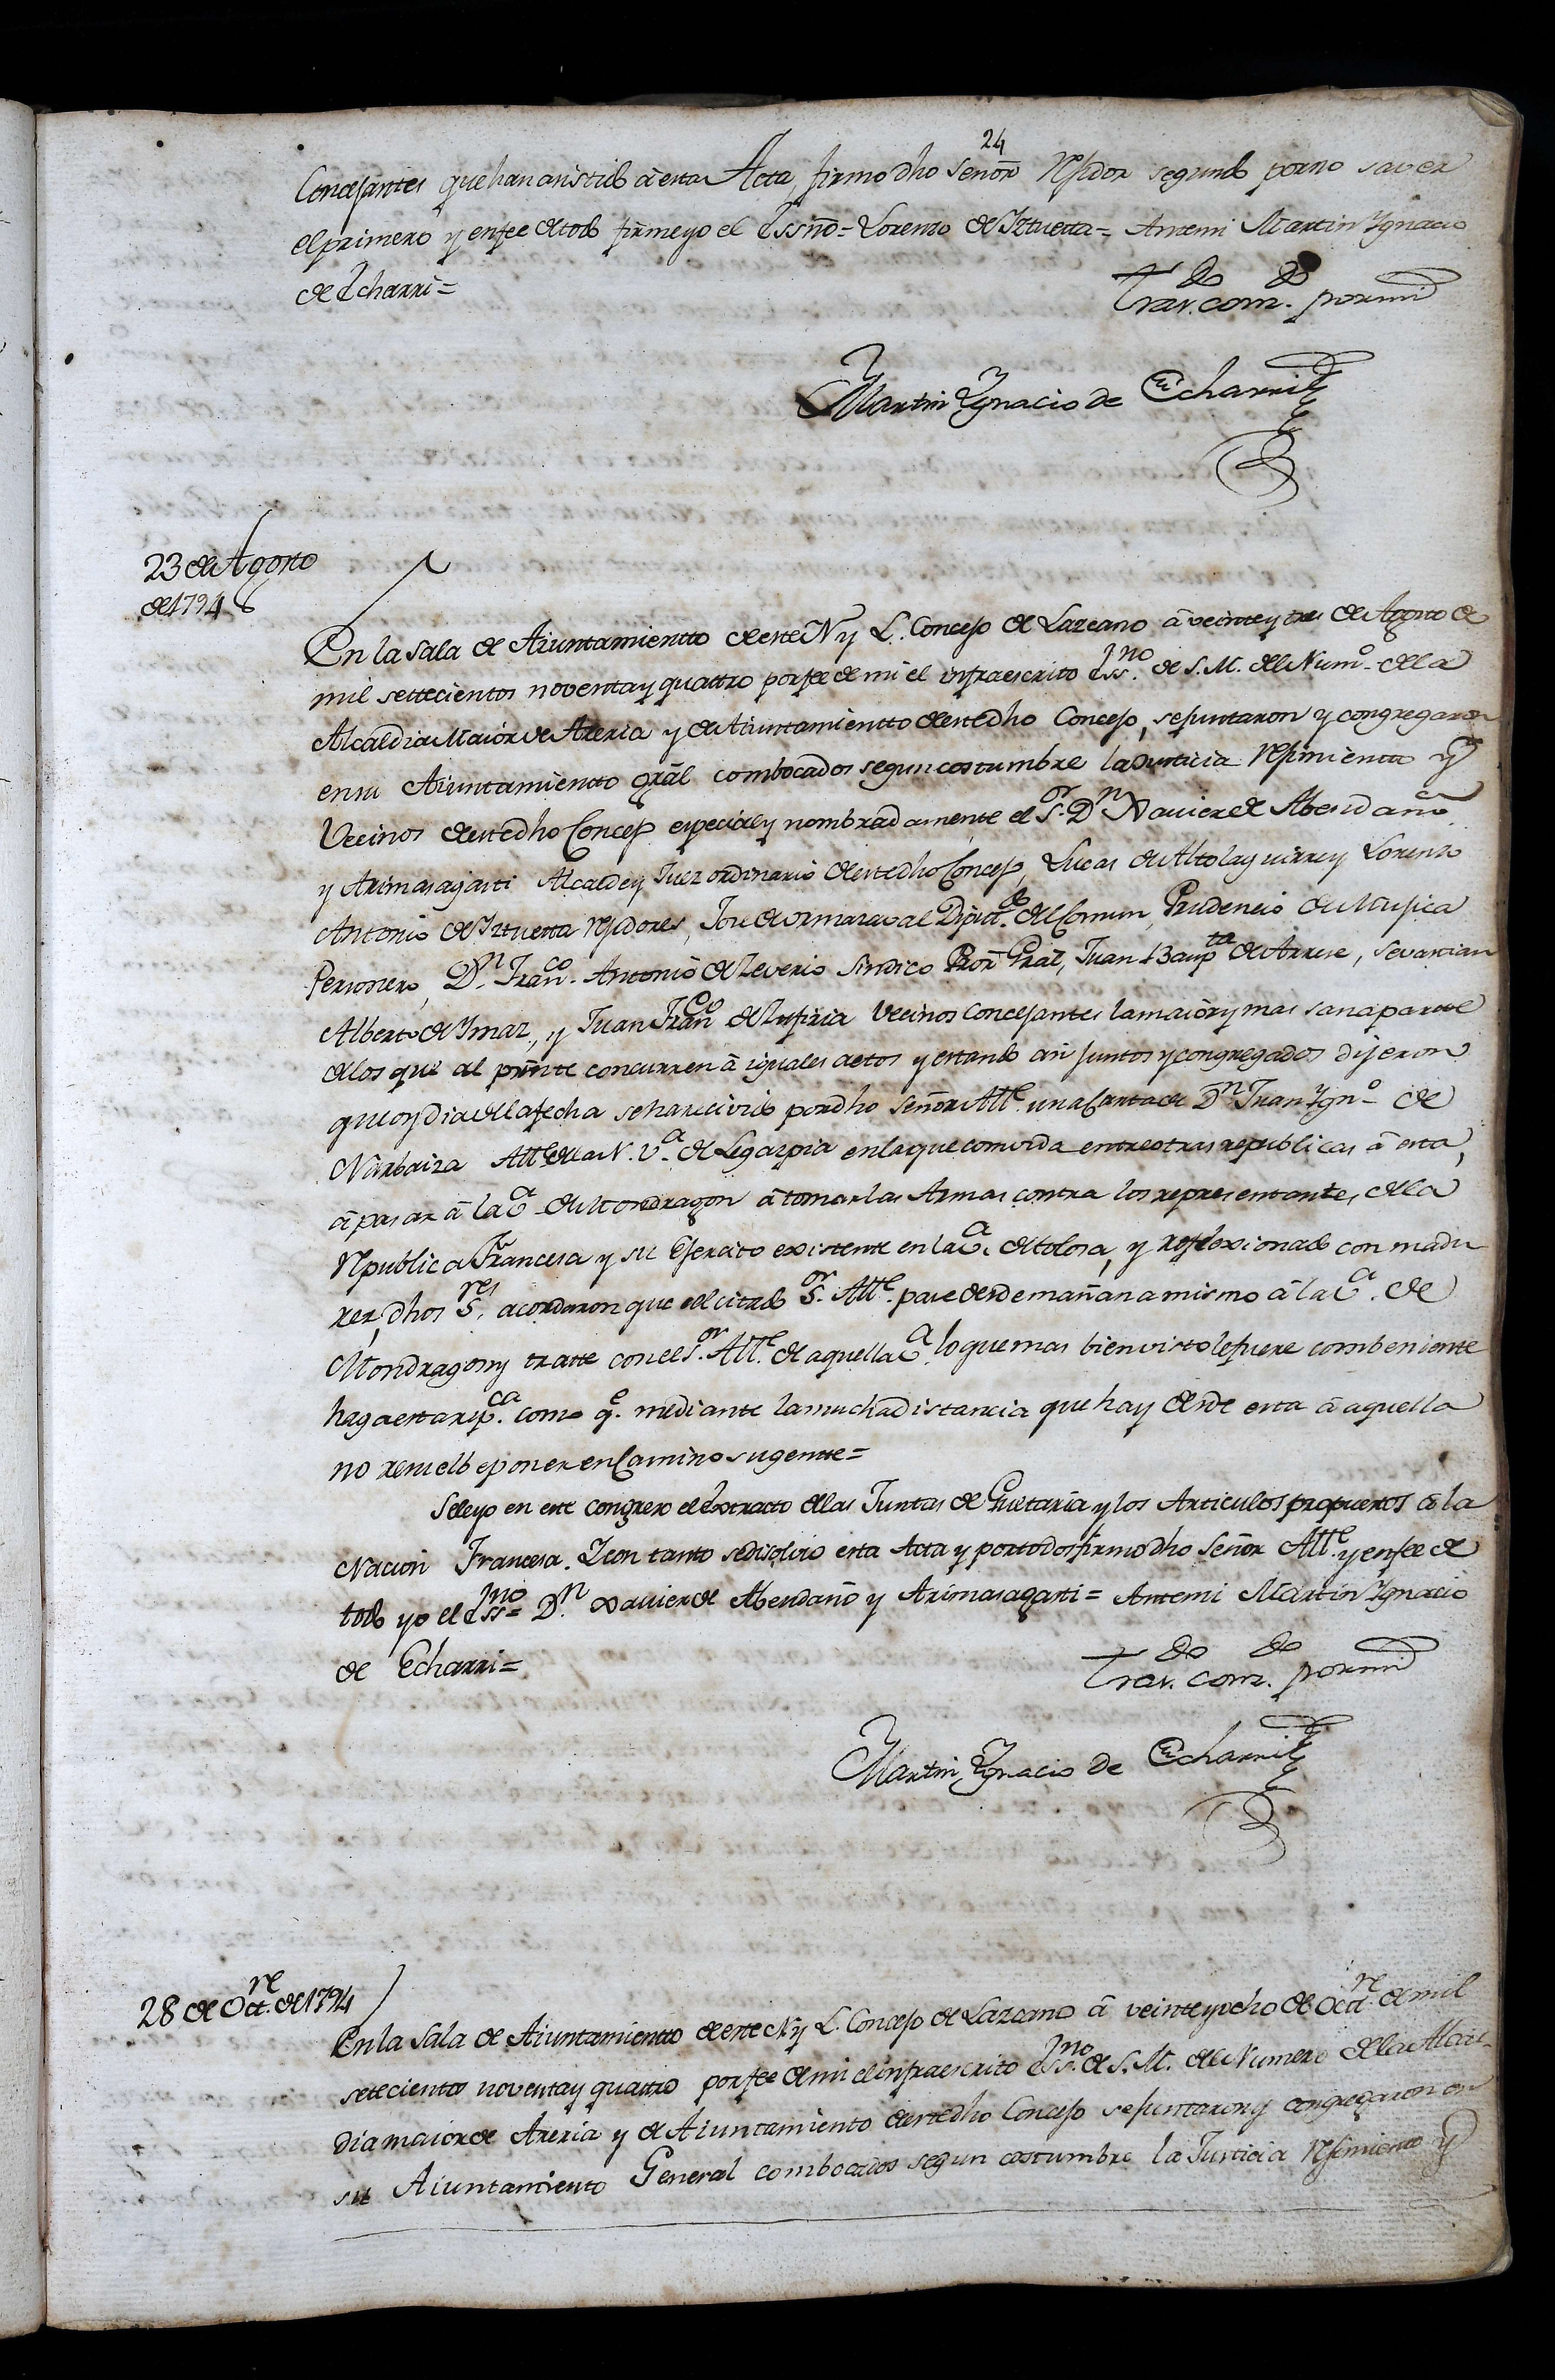 24
Concejantes que han asistido a esta Acta, firmo dho señor Rejidor segundo por no saver
el primero y enfee de todo firme yo el Essno = Lorenzo de Yztuetta = Antemi Martin Ygnacio
de Echarri =
Tras.do com.do por mi
Martin Ygnacio de Echarri
23 de Agosto
de 1794
En la sala de Aiuntamientto de este N. y L. Concejo de Lazcano â veinte y tres de Agosto de
mil settecientos noventa y quattro por fee de mi el infraescrito Essno. de S. M. del Numo. de la
Alcaldia Maior de Areria y de Aiuntamientto de este dho Concejo, se juntaron y congregaron
en su Aiuntamiento gral combocados segun costumbre la Justicia Rejimiento y
Vecinos de este dho Concejo especial y nombradamente el Sor. Dn. Xavier de Abendaño
y Arimasagasti Alcalde y Juez ordinario de este dho Concejo, Lucas de Altolaguirre y Lorenzo
Antonio de Yztuetta Rejidores, Jose de Ormazaval Diputdo. del Comun, Prudencio de Mujica
Personero, Dn. Franco. Antonio de Zeverio Sindico Pror Gral, Juan Baupta de Arrese, Sevastian
Alberto de Ymaz, y Juan Franco de Zufiria Vecinos Concejantes la maior y mas sana parte
de los que al presnte concurren â iguales actos y estando asi juntos y congregados dijeron
que oy dia de la fecha se ha recivido por dho Señor Alle. una Carta de Dn. Juan Ygno. de
Narbaiza Alle de la N. Va. de Legazpia en la que comvida entre otras republicas â esta,
â pasar â la Va. de Mondragon â tomar las Armas contra los representantes de la
Republica Francesa y su Ejercito existente en la Va. de Tolosa, y reflexionado con madu
rez, dhos Sres, acordaron que el citado Sor. Alle. pase desde mañana mismo â la Va. de
Mondragon y tratte con el Sor. Alle. de aquella Va. lo que mas bien visto le fuere combeniente
haga esta repca. como qe. mediante la mucha distancia que hay desde esta â aquella
no resuelbe poner en Camino su gentte =
Se leyo en este congreso el Extracto de las Juntas de Guetaria y los Articulos propuestos â la
Nacion Francesa. Y con tanto se disolvio esta Acta y por todos firmo dho Señor Alle. y enfee de
todo yo el Essno = Dn. Xavier de Abendaño y Arimasagasti = Antemi Martin Ygnacio
de Echarri =
Tras.do com.do por mi
Martin Ygnacio de Echarri
28 de Octre. de 1794
En la sala de Aiuntamientto de este N. y L. Concejo de Lazcano â veinte y ocho de Octre. de mil
setecientos noventa y quattro por fee de mi el infraescrito Essno. de S. M. del Numero de la Alcal-
dia maior de Areria y de Aiuntamiento de este dho Concejo se juntaron y congregaron en
su Aiuntamiento General combocados segun costumbre la Justicia Rejimiento y